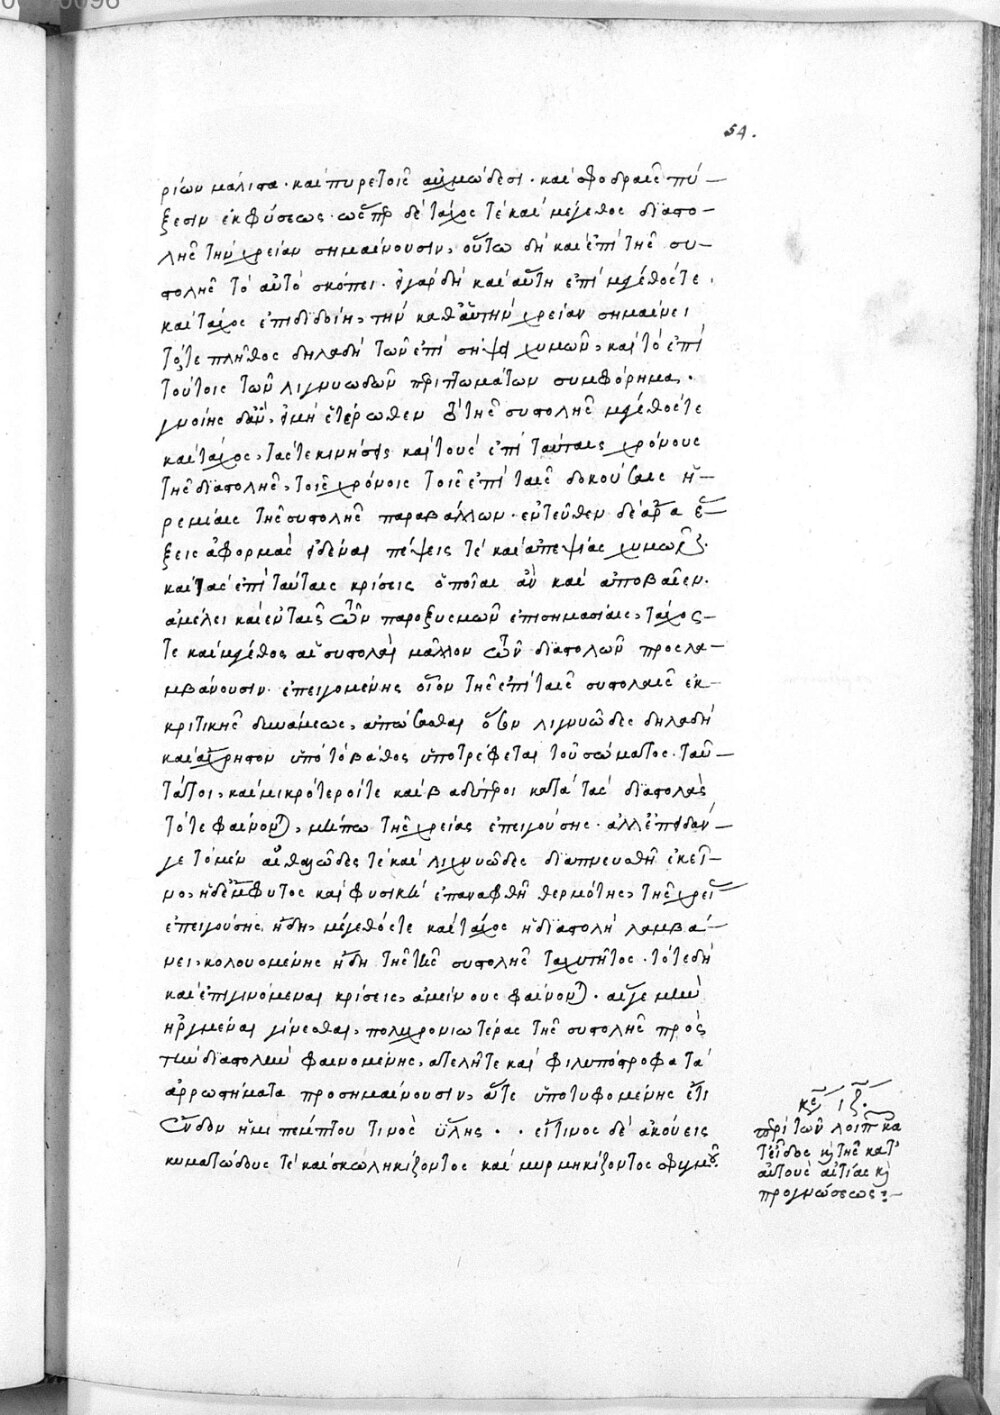 54.
ριῶν μάλιστα. καὶ πυρετοῖς αὐχμώδεσι. καὶ σφοδραῖς πύ-
ξεσιν ἐκφύσεως. ὥσπερ δὲ τάχος τὲ καὶ μέγεθος διαστο-
λῆς τὴν χρείαν σημαίνουσιν, οὕτω δὴ καὶ ἐπὶ τῆς συ-
στολῆς τὸ αὐτὸ σκόπει. εἰ γὰρ δὴ καὶ αὕτη ἐπὶ μέγεθός τε
καὶ τάχος ἐπιδιδοίη, τὴν καθ' αὑτὴν χρείαν σημαίνει
τό, τε πλῆθος δηλαδὴ τῶν ἐπὶ σήψει χυμῶν, καὶ τὸ ἐπὶ
τούτοις τῶν λιγνυωδῶν περιττωμάτων συμφόρημα.
γνοίης δ' ἂν, εἰ μὴ ἑτέρωθεν τὸ τῆς συστολῆς μέγεθός τε
καὶ τάχος, τάς τε κινήσεις καὶ τοὺς ἐπὶ ταύταις χρόνους
τῆς διαστολῆς, τοῖς χρόνοις τοῖς ἐπὶ ταῖς δοκούσαις ἠ-
ρεμίαις τῆς συστολῆς παραβάλλων. ἐντεῦθεν δὲ ἄρα ἕ-
ξεις ἀφορμὰς εἰδέναι πέψεις τὲ καὶ ἀπεψίας χυμῶν.
καὶ τὰς ἐπὶ ταύταις κρίσεις ὁποῖαι ἂν καὶ ἀποβαῖεν.
ἀμέλει κἀν ταῖς τῶν παροξυσμῶν ἐπισημασίαις, τάχος
τε καὶ μέγεθος αἱ συστολαὶ μᾶλλον τῶν διαστολῶν προσλα-
μβάνουσιν. ἐπειγομένης οἷον τῆς ἐπὶ ταῖς συστολαῖς ἐκ-
κριτικῆς δυνάμεως, ἀπώσασθαι ὅσον λιγνυῶδες δηλαδὴ
καὶ ἄχρηστον ὑπὸ τὸ βάθος ὑποτρέφεται τοῦ σώματος. ταῦ-
τάτοι, καὶ μικρότεροί τε καὶ βραδύτεροι κατὰ τὰς διαστολὰς
τότε φαίνονται, μήπω τῆς χρείας ἐπειγούσης. ἀλλ' ἐπειδάν
γε τὸ μὲν αἰθαλῶδες τὲ καὶ λιγνυῶδες διαπνευσθῇ ἐκεῖ-
νο, ἡ δ' ἔμφυτος καὶ φυσικὴ ἐπαναφθῇ θερμότης, τῆς χρείας
ἐπειγούσης ἤδη, μέγεθός τε καὶ τάχος ἡ διαστολὴ λαμβά-
νει, κολουομένης ἤδη τῆς τῆς συστολῆς ταχυτῆτος. τότε δὴ
καὶ ἐπιγινόμεναι κρίσεις, ἀμείνους φαίνονται. αἵ γε μὴν
ἠργμέναι γίνεσθαι, πολυχρονιωτέρας τῆς συστολῆς πρὸς
τὴν διαστολὴν φαινομένης, ἀτελῆ τε καὶ φιλυπόστροφα τὰ
ἀρρωστήματα προσημαίνουσιν, ἅτε ὑποτυφομένης ἔτι
ἔνδον ἡμιπέπτου τινὸς ὕλης. . εἴ τινος δὲ ἀκούεις
κυματώδους τὲ καὶ σκωληκίζοντος καὶ μυρμηκίζοντος σφυγμοῦ.
κεφ ιζ.
περὶ τῶν λοιπῶν κα
τ' εἶδος καὶ τῆς κατ'
αὐτοὺς αἰτίας καὶ
προγνώσεως:-